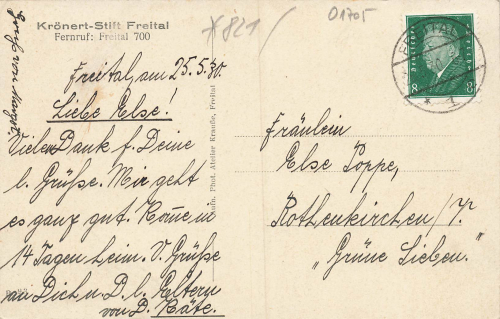 Krönert-Stift Freital
Fernruf: Freital 700
*821
01705
Freital, am 25.5.30.
Liebe Else!
Vielen Dank f. Deine
l. Grüße. Mir geht
es ganz gut. Komme in
14 Tagen heim. V. Grüße
an Dich u. D. l. Eltern
von D. Käte.
Aufn. Phot. Atelier Krauße, Freital
FREITAL
1
8 8
Fräulein
Else Poppe,
Rothenkirchen/V.
„Grüne Linden."